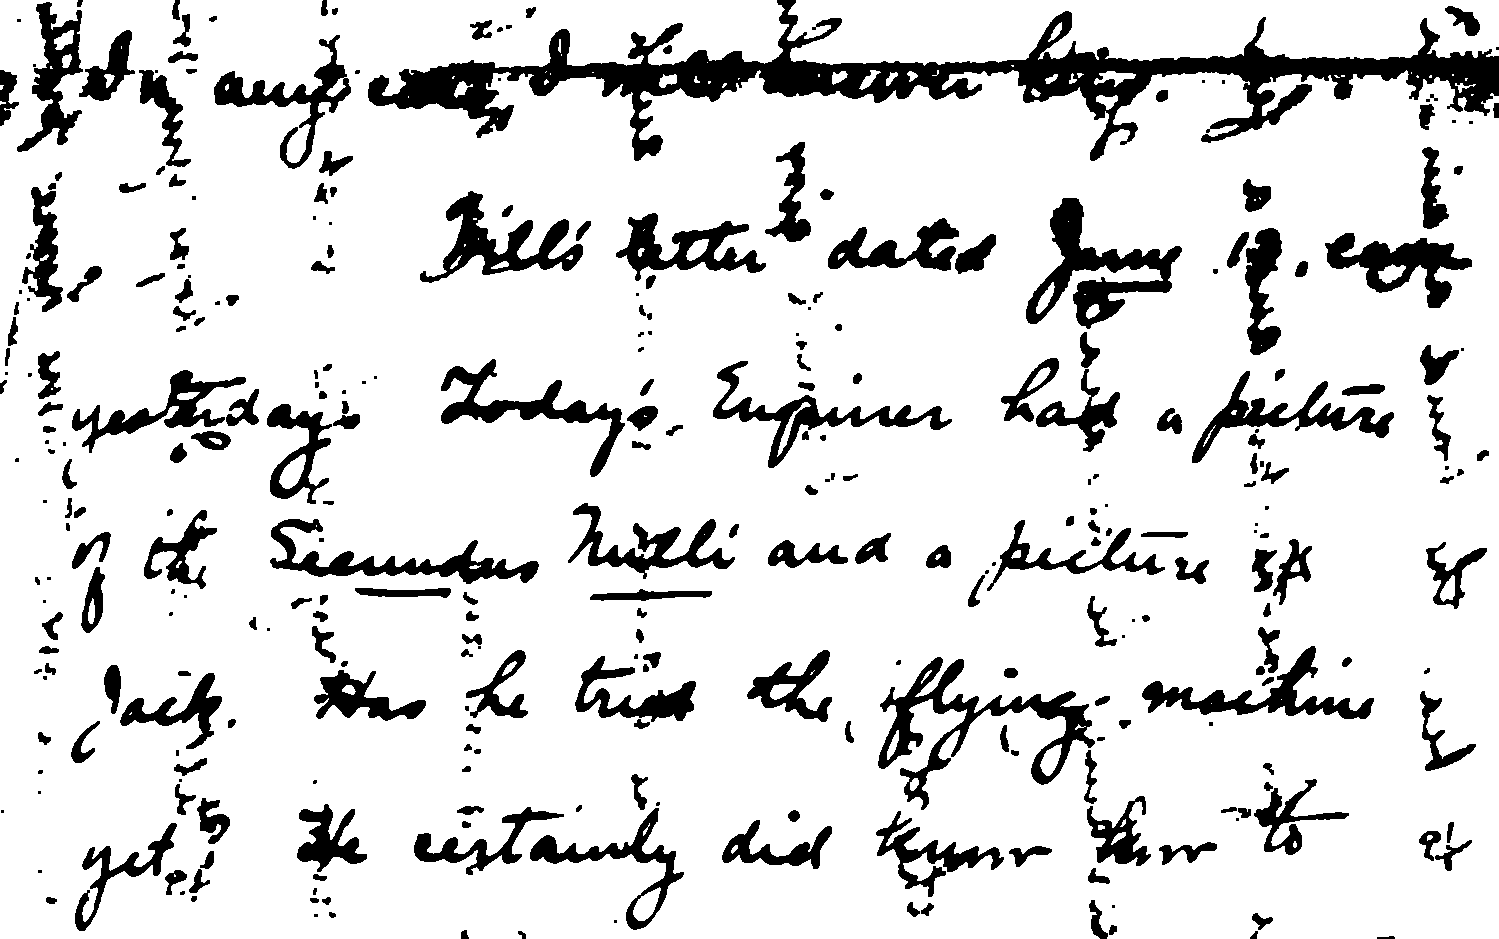 In any case I will answer him.
Bill's letter dated June 19. came
yesterday. Today's Enquirer had a picture
of the Secundus Nulli and a picture of
Jack. Has he tried the flying machine
yet. He certainly did know how to